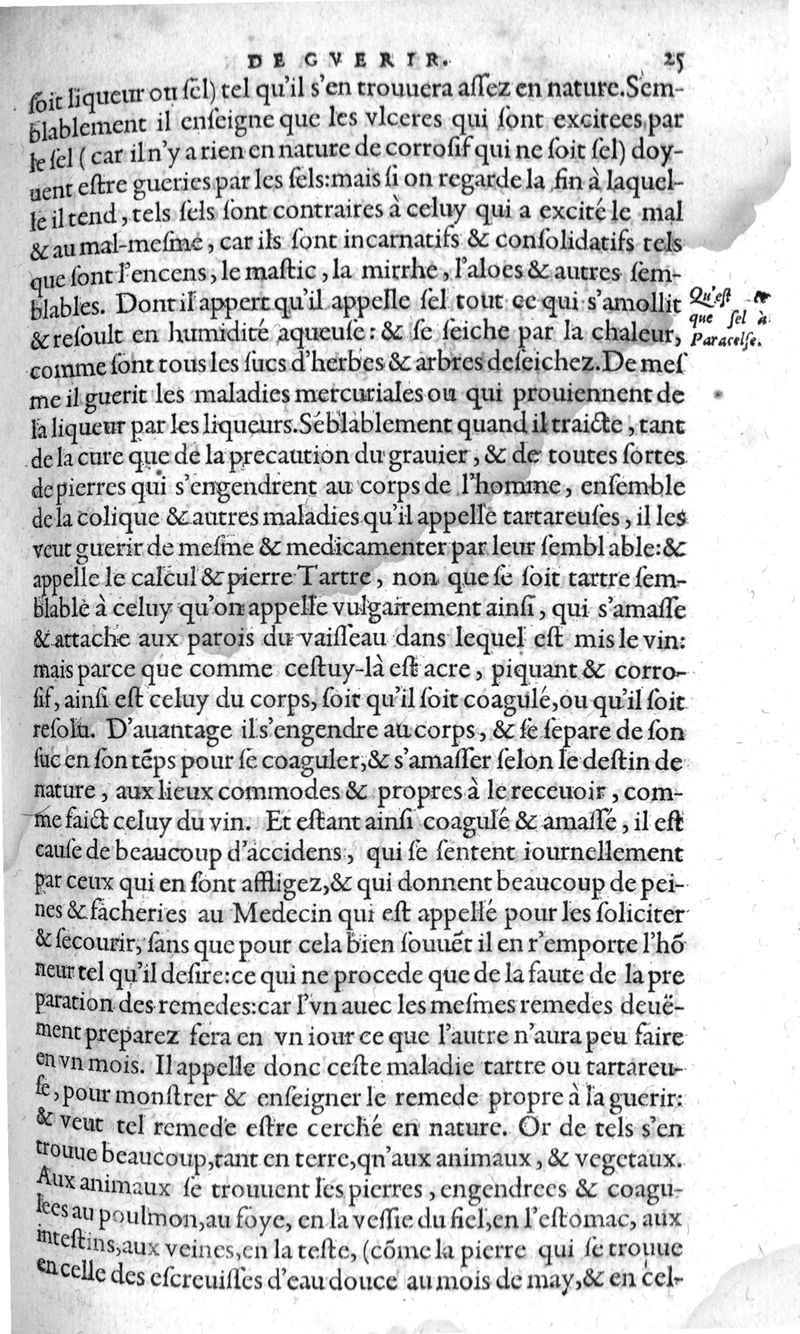 DE GVERIR. 25
ſoit liqueur ou ſel) tel qu'il s'en trouuera aſſez en nature.Sem-
blablement il enſeigne que les vlceres qui ſont excitees par
le ſel (car il n'y a rien en nature de corroſif qui ne ſoit ſel) doy-
uent eſtre gueries par les ſels:mais ſi on regarde la fin à laquel-
le il tend, tels ſels ſont contraires à celuy qui a excité le mal
& au mal-meſme, car ils ſont incarnatifs & conſolidatifs tels
que ſont l'encens, le maſtic, la mirrhe, l'aloes & autres ſem-
blables. Dont il appert qu'il appelle ſel tout ce qui s'amollit
& reſoult en humidité aqueuſe: & ſe ſeiche par la chaleur,
Qu'eſt
que ſel à
Paracelſe.
comme ſont tous les ſucs d'herbes & arbres deſeichez.De meſ
me il guerit les maladies mercuriales ou qui prouiennent de
la liqueur par les liqueurs.Séblablement quand il traicte, tant
de la cure que de la precaution du grauier, & de toutes ſortes
de pierres qui s'engendrent au corps de l'homme, enſemble
de la colique & autres maladies qu'il appelle tartareuſes, il les
veut guerir de meſme & medicamenter par leur ſembl able:&
appelle le calcul & pierre Tartre, non que ſe ſoit tartre ſem-
blable à celuy qu'on appelle vulgairement ainſi, qui s'amaſſe
& attache aux parois du vaiſſeau dans lequel eſt mis le vin:
mais parce que comme ceſtuy-là eſt acre, piquant & corro-
ſif, ainſi eſt celuy du corps, ſoit qu'il ſoit coagulé,ou qu'il ſoit
reſolu. D'auantage il s'engendre au corps, & ſe ſepare de ſon
ſuc en ſon tẽps pour ſe coaguler,& s'amaſſer ſelon le deſtin de
nature, aux lieux commodes & propres à le receuoir, com-
me faict celuy du vin. Et eſtant ainſi coagulé & amaſſé, il eſt
cauſe de beaucoup d'accidens, qui ſe ſentent iournellement
par ceux qui en ſont affligez,& qui donnent beaucoup de pei-
nes & fâcheries au Medecin qui eſt appellé pour les ſoliciter
& ſecourir, ſans que pour cela bien ſouuẽt il en r'emporte l'hõ
neur tel qu'il deſire:ce qui ne procede que de la faute de la pre
paration des remedes:car l'vn auec les meſmes remedes deuë-
ment preparez fera en vn iour ce que l'autre n'aura peu faire
en vn mois. Il appelle donc ceſte maladie tartre ou tartareu-
ſe, pour monſtrer & enſeigner le remede propre à la guerir:
& veut tel remede eſtre cerché en nature. Or de tels s'en
trouue beaucoup,tant en terre,qn'aux animaux, & vegetaux.
Aux animaux ſe trouuent les pierres, engendrees & coagu-
lees au poulmon,au foye, en la veſſie du fiel,en l'eſtomac, aux
inteſtins,aux veines,en la teſte, (cõme la pierre qui ſe trouue
en celle des eſcreuiſſes d'eau douce au mois de may,& en cel-